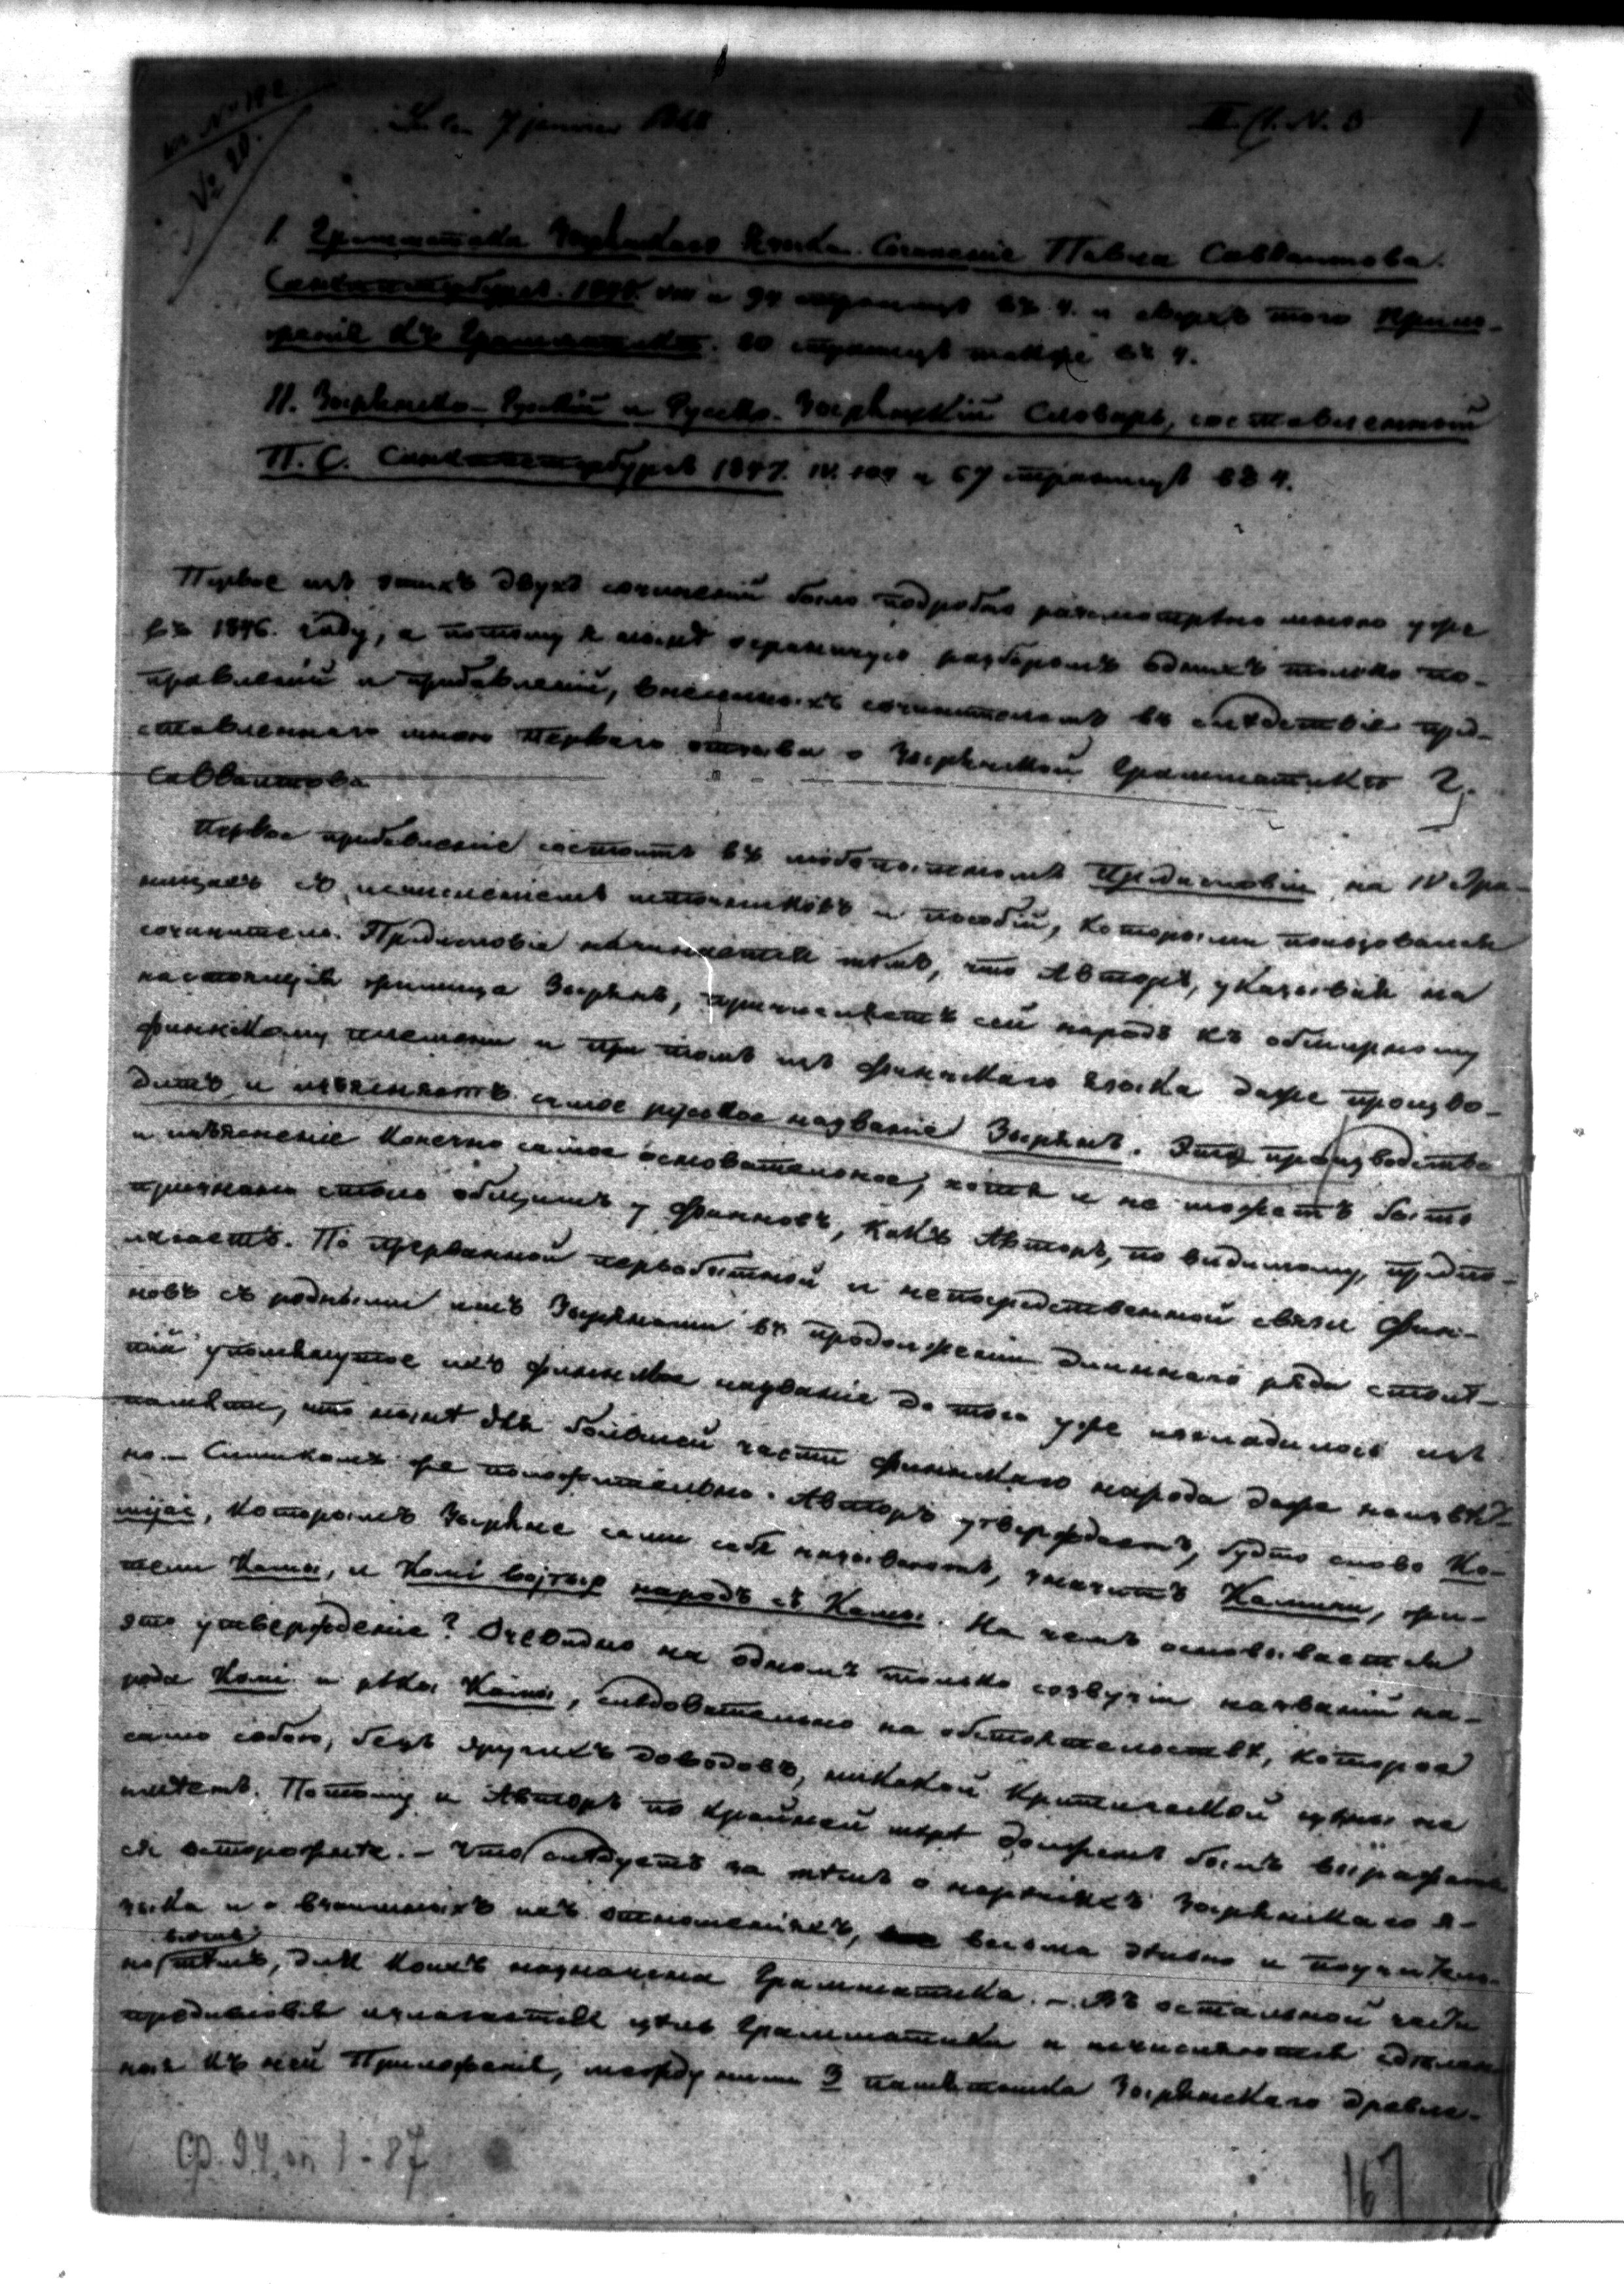 № 20.
Lu le 7 janvier 1848
III. Cl. N. 3
I. Грамматика Зырянскаго Языка. Сочиненіе Павла Савваитова.
Санктпетербургъ. 1849. VIII и 97 страницъ въ 4. и сверхъ того Прило-
женія къ Грамматикѣ. 80 страницъ также въ 4.
II. Зырянско-Русскій и Русско-Зырянскій Словарь, составленный
П. С. Санктпетербургъ 1849. IV. 104 и 67 страницъ въ 4.
Первое изъ этихъ двухъ сочиненій было подробно разсмотрѣно мною уже
въ 1846. году, а потому я нынѣ ограничусь разборомъ однихъ только по-
правленій и прибавленій, внесенныхъ сочинителемъ въ слѣдствіе пред-
ставленнаго мною перваго отзыва о Зырянской Грамматикѣ Г.
Савваитова
Первое прибавленіе состоитъ въ любопытномъ Предисловіи на IV стра-
ницахъ съ исчисленіемъ источниковъ и пособій, которыми пользовался
сочинитель. Предисловіе начинается тѣмъ, что Авторъ, указывая на
настоящія жилища Зырянъ, причисляетъ сей народъ къ обширному
финскому племени и при томъ изъ финскаго языка даже произво-
дитъ и изъясняетъ самое русское названіе Зырянъ. Это производство
и изъясненіе конечно самое основательное, хотя и не можетъ быть
признано столь общимъ у Финновъ, какъ Авторъ, по видимому, предпо-
лагаетъ. По прерванной первобытной и непосредственной связи Фин-
новъ съ родными имъ Зырянами въ продолженіи длиннаго ряда столѣ-
тій упомянутое ихъ финское названіе до того уже изгладилось изъ
памяти, что нынѣ для большей части финскаго народа даже неизвѣст-
но. — Слишкомъ же положительно Авторъ утверждаетъ, будто слово Ко-
mijas, которымъ Зыряне сами себя называютъ, значитъ Камичи, жи-
тели Камы, и Komi vojtyr народъ съ Камы. На чемъ основывается
это утвержденіе? Очевидно на одномъ только созвучіи названій на-
рода Komi и рѣки Камы, слѣдовательно на обстоятельствѣ, которое
само собою, безъ другихъ доводовъ, никакой критической цѣны не
имѣетъ. Потому и Авторъ по крайней мѣрѣ долженъ былъ выражать
ся осторожнѣе. — Что слѣдуетъ за тѣмъ о нарѣчіяхъ Зырянскаго я-
зыка и о взаимныхъ ихъ отношеніяхъ, весьма дѣльно и поучитель-
но тѣмъ, для коихъ назначена Грамматика. — Въ остальной части
предисловія излагается цѣль Грамматики и исчисляются сдѣлан
ныя къ ней Приложенія, между ними 3 памятника Зырянскаго древле-
Ф. 94, оп 1 - 87
167